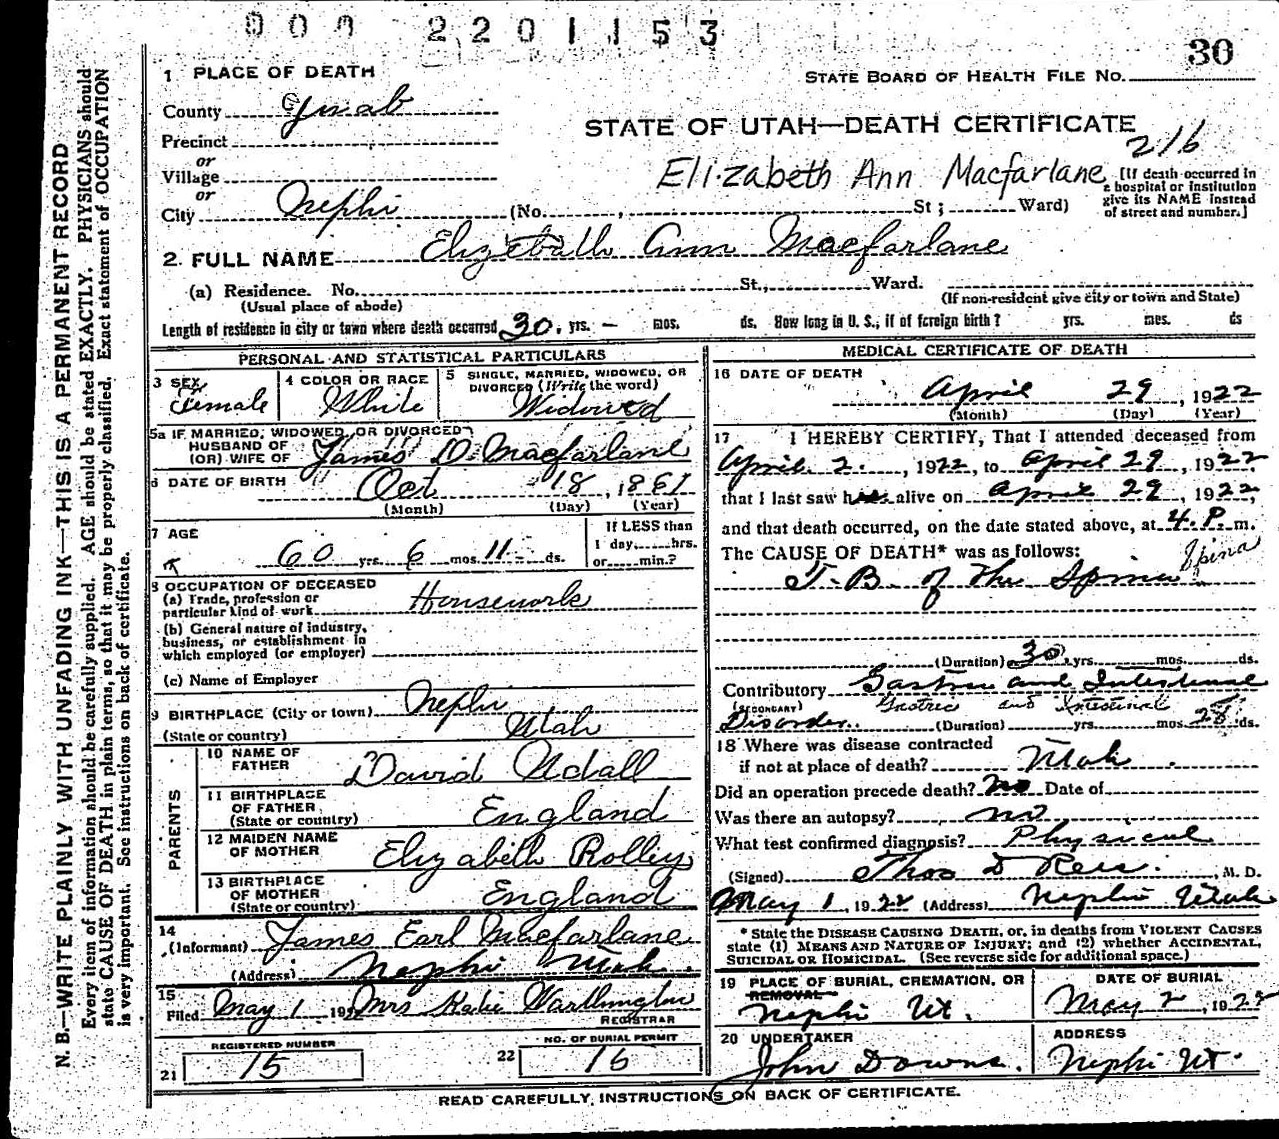 000 2201153
30
1 PLACE OF DEATH
STATE BOARD OF HEALTH FILE No.
County Juab
STATE OF UTAH—DEATH CERTIFICATE
Precinct
216
or
Village
Elizabeth Ann Macfarlane
[If death occurred in
a hospital or institution
give its NAME instead
of street and number.]
or
City Nephi (No. , St; Ward)
2. FULL NAME Elizebath Ann Macfarlane
(a) Residence. No. St., Ward.
(Usual place of abode) (If non-resident give city or town and State)
Length of residence in city or town where death occurred 30 yrs. — mos. ds. How long in U. S., if of foreign birth? yrs. mos. ds
PERSONAL AND STATISTICAL PARTICULARS
3 SEX 4 COLOR OR RACE 5 SINGLE, MARRIED, WIDOWED, OR
DIVORCED (Write the word)
Female White Widowed
5a IF MARRIED, WIDOWED, OR DIVORCED
HUSBAND OF
(OR) WIFE OF James D. Macfarlane
6 DATE OF BIRTH Oct 18, 1861
(Month) (Day) (Year)
7 AGE If LESS than
60 yrs. 6 mos. 11 ds. 1 day, hrs.
or min.?
8 OCCUPATION OF DECEASED
(a) Trade, profession or
particular kind of work Housework
(b) General nature of industry,
business, or establishment in
which employed (or employer)
(c) Name of Employer
9 BIRTHPLACE (City or town) Nephi
(State or country) Utah
PARENTS
10 NAME OF
FATHER David Udall
11 BIRTHPLACE
OF FATHER
(State or country) England
12 MAIDEN NAME
OF MOTHER Elizabeth Rolley
13 BIRTHPLACE
OF MOTHER
(State or country) England
14
(Informant) James Earl Macfarlane
(Address) Nephi Utah.
15
Filed May 1 192 Mrs Katie Warthington
REGISTRAR
REGISTERED NUMBER NO. OF BURIAL PERMIT
21 15 22 16
MEDICAL CERTIFICATE OF DEATH
16 DATE OF DEATH
April 29, 1922
(Month) (Day) (Year)
17 I HEREBY CERTIFY, That I attended deceased from
April 2, 1922, to April 29, 1922
that I last saw her alive on April 29, 1922,
and that death occurred, on the date stated above, at 4 P. m.
The CAUSE OF DEATH* was as follows:
T. B. of the Spine Spina
(Duration) 30 yrs. mos. ds.
Contributory Gastric and Intestinal
(SECONDARY) Gastric and Intestinal
Disorder. (Duration) yrs. mos. 28 ds.
18 Where was disease contracted
if not at place of death? Utah.
Did an operation precede death? No Date of
Was there an autopsy? no
What test confirmed diagnosis? Physical
(Signed) Thos D Rees. M. D.
May 1, 1922 (Address) Nephi Utah
* State the DISEASE CAUSING DEATH, or, in deaths from VIOLENT CAUSES
state (1) MEANS AND NATURE OF INJURY; and (2) whether ACCIDENTAL,
SUICIDAL OR HOMICIDAL. (See reverse side for additional space.)
19 PLACE OF BURIAL, CREMATION, OR
REMOVAL
DATE OF BURIAL
Nephi Ut. May 2, 1922
20 UNDERTAKER ADDRESS
John Downs. Nephi Ut.
READ CAREFULLY, INSTRUCTIONS ON BACK OF CERTIFICATE.
N. B.—WRITE PLAINLY WITH UNFADING INK—THIS IS A PERMANENT RECORD
Every item of information should be carefully supplied. AGE should be stated EXACTLY. PHYSICIANS should
state CAUSE OF DEATH in plain terms, so that it may be properly classified. Exact statement of OCCUPATION
is very important. See instructions on back of certificate.